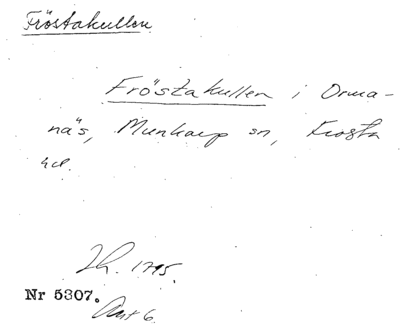 Fröstakullen
Fröstakullen i Orma-
näs, Munkarp sn, Frosta
hd.
1795.
Nr 5307.
Akt 6.